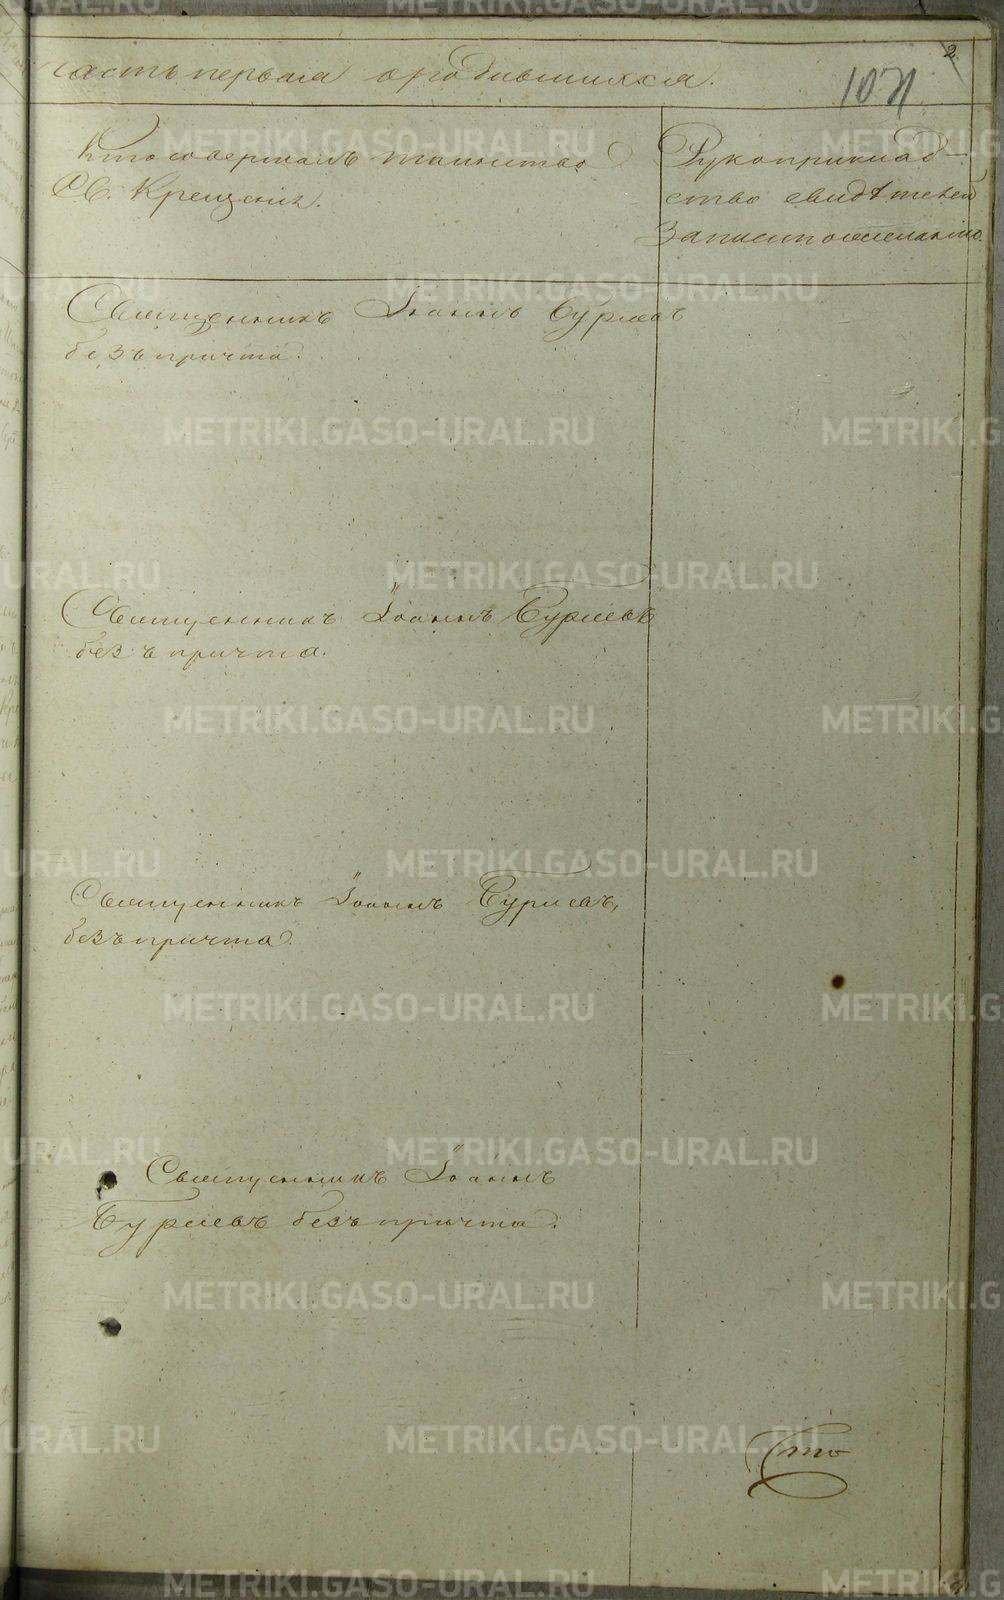 2
часть первая о родившихся.
1071
Кто совершалъ таинство
Св. Крещенія.
Рукоприклад-
ство свидѣтелей
записи по желанію.
Священникъ Іоаннъ Бурмовъ
безъ причта.
Священникъ Іоаннъ Бурмовъ
безъ причта.
Священникъ Іоаннъ Бурмовъ,
безъ причта.
Священникъ Іоаннъ
Бурмовъ безъ причта.
METRIKI.GASO-URAL.RU